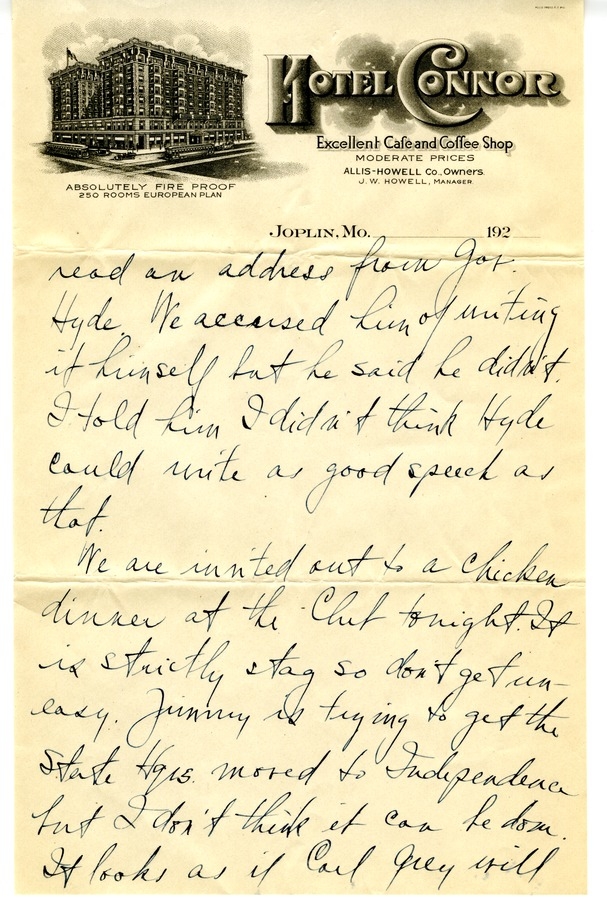 HOTEL CONNOR
Excellent Cafe and Coffee Shop
MODERATE PRICES
ALLIS-HOWELL Co., OWNERS.
J. W. HOWELL, MANAGER.
ABSOLUTELY FIRE PROOF
250 ROOMS EUROPEAN PLAN
JOPLIN, MO. 192
read an address from Gov.
Hyde. We accused him of writing
it himself but he said he didn't.
I told him I didn't think Hyde
could write as good speech as
that.
We are invited out to a chicken
dinner at the Club tonight. It
is strictly stag so don't get un-
easy. Jimmy is trying to get the
State Hqrs. moved to Independence
but I don't think it can be done.
It looks as if Carl Grey will